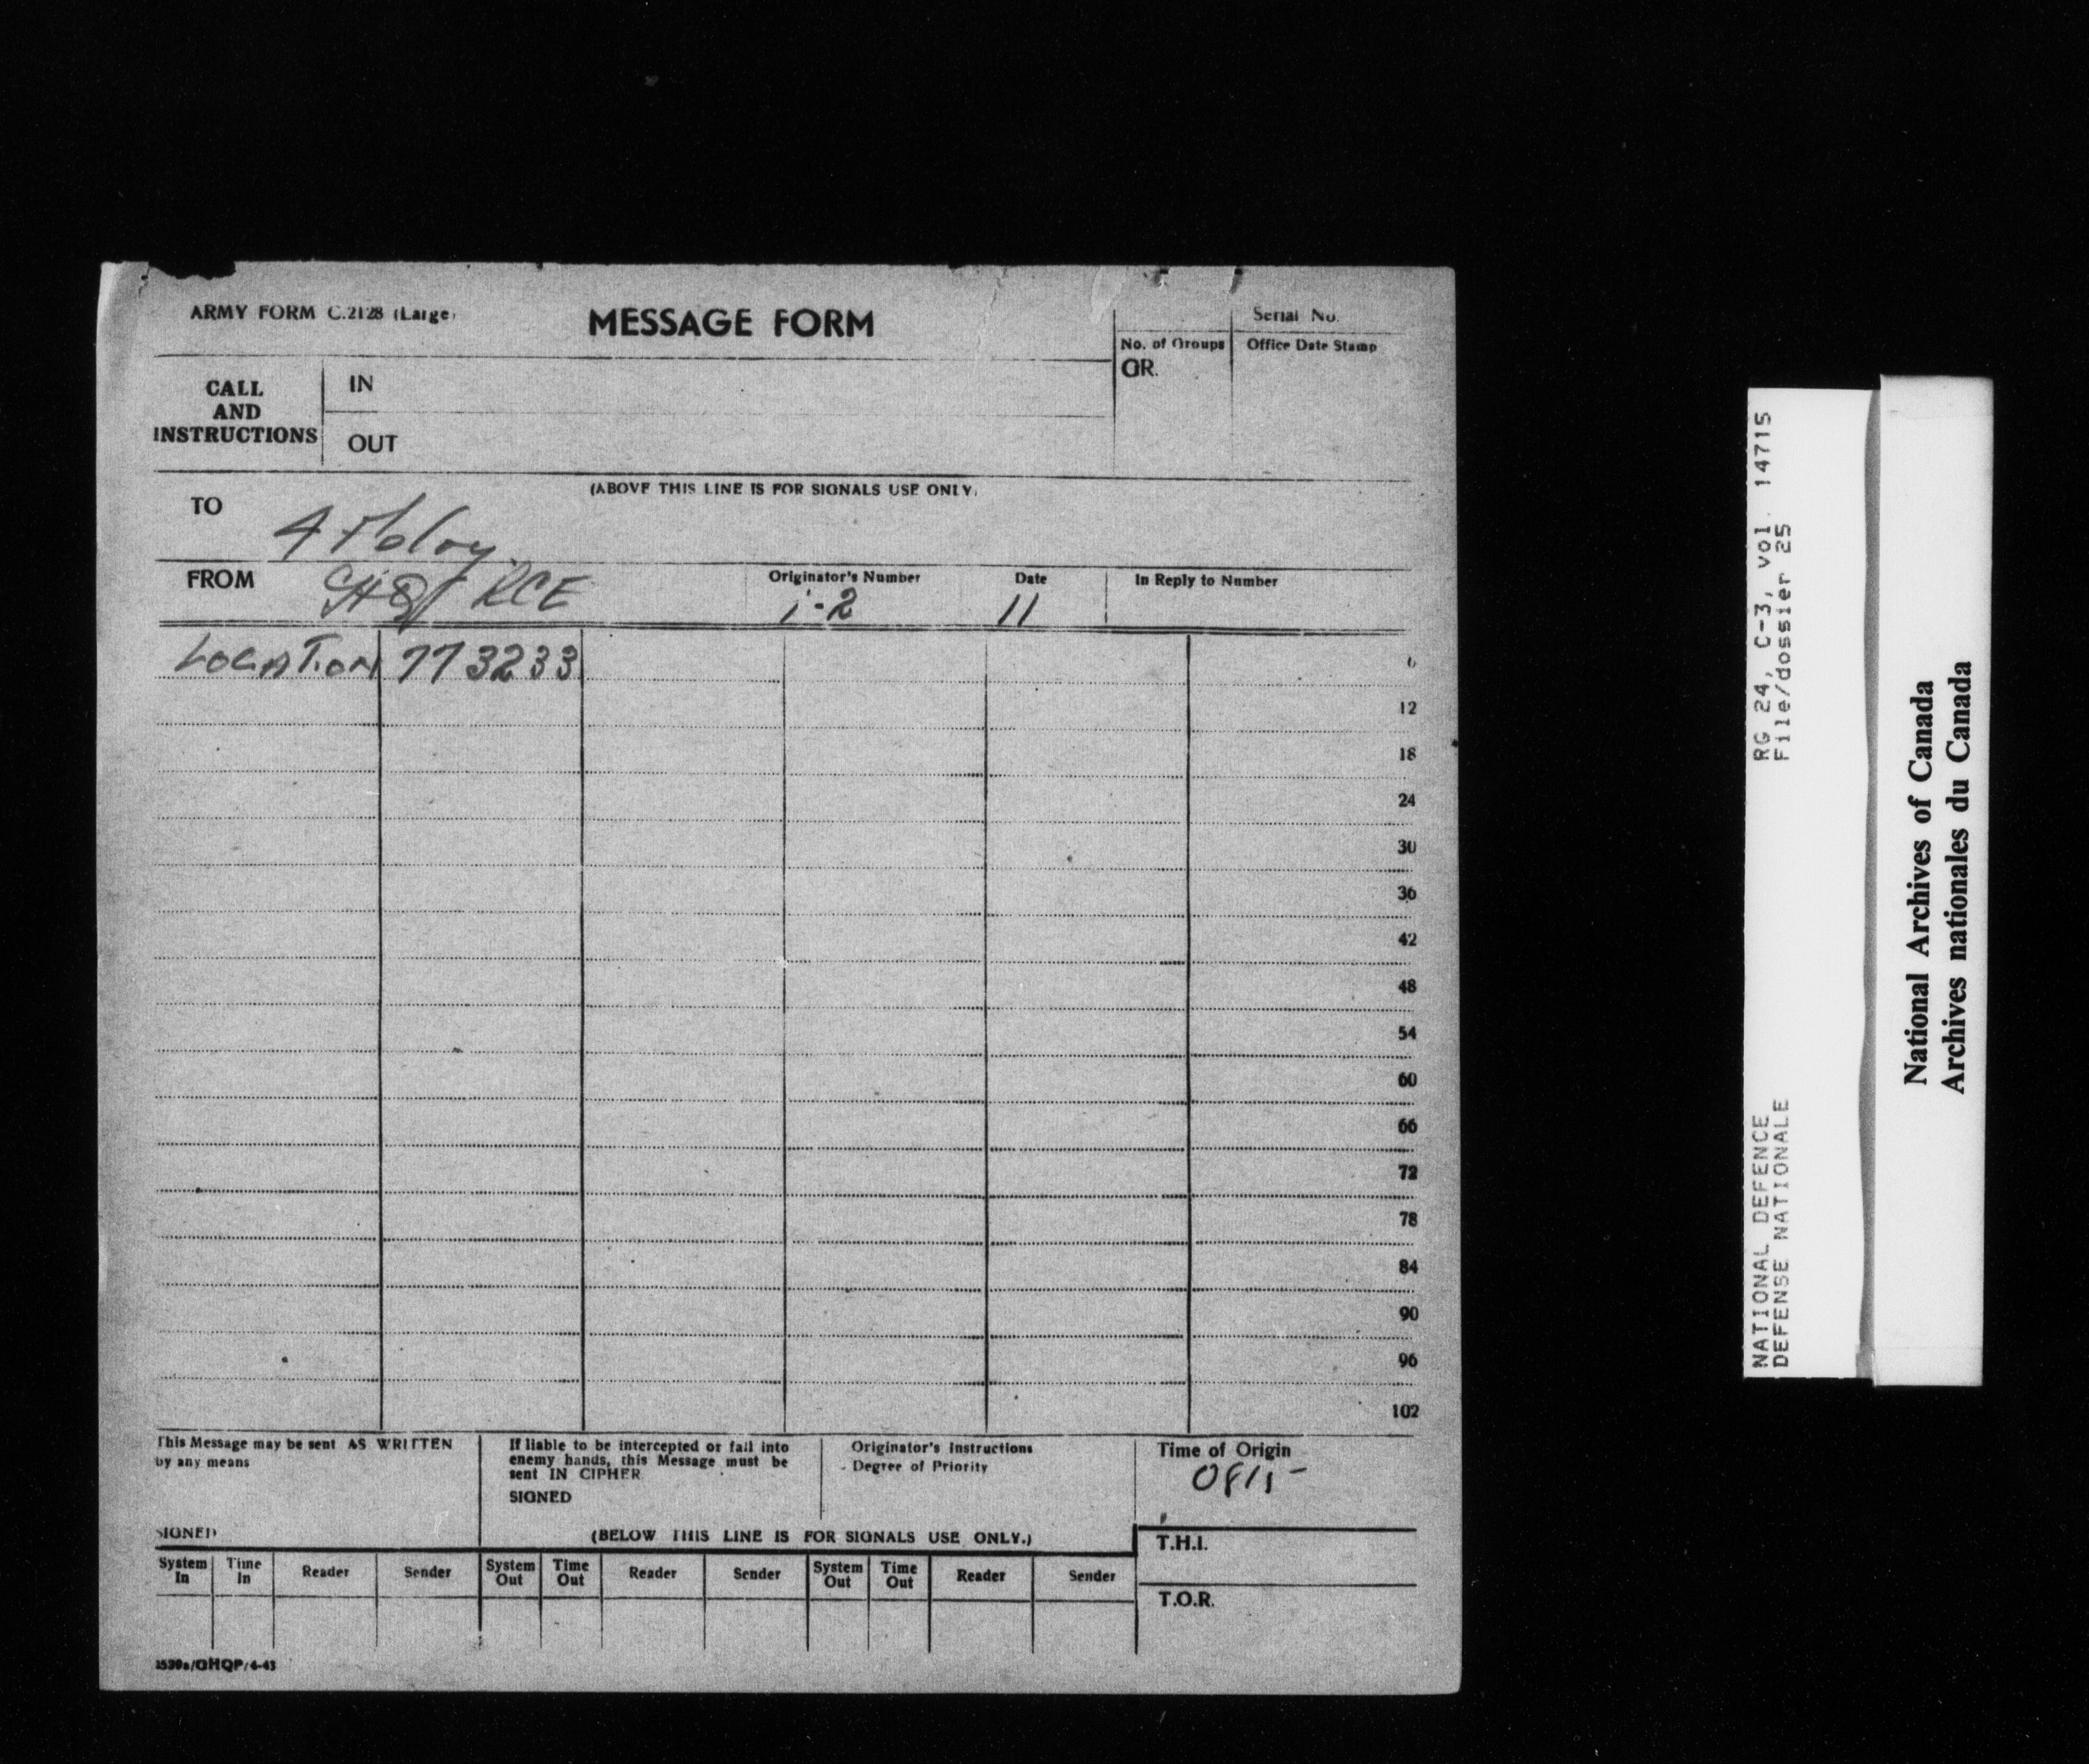 ARMY FORM C.2128 (Large)
MESSAGE FORM
Serial No.
No. of Groups
Office Date Stamp
GR.
CALL
AND
INSTRUCTIONS
IN
OUT
(ABOVE THIS LINE IS FOR SIGNALS USE ONLY)
TO
4
FROM
RCE
Originator's Number
i-2
Date
11
In Reply to Number
LOCATION 773233
6
12
18
24
30
36
42
48
54
60
66
72
78
84
90
96
102
This Message may be sent AS WRITTEN
by any means
SIGNED
If liable to be intercepted or fall into
enemy hands, this Message must be
sent IN CIPHER
SIGNED
Originator's Instructions
Degree of Priority
Time of Origin
0815
(BELOW THIS LINE IS FOR SIGNALS USE ONLY.)
T.H.I.
T.O.R.
System In
Time In
Reader
Sender
System Out
Time Out
Reader
Sender
System Out
Time Out
Reader
Sender
NATIONAL DEFENCE RG 24, C-3, vol. 14715
DEFENSE NATIONALE File/dossier 25
National Archives of Canada
Archives nationales du Canada